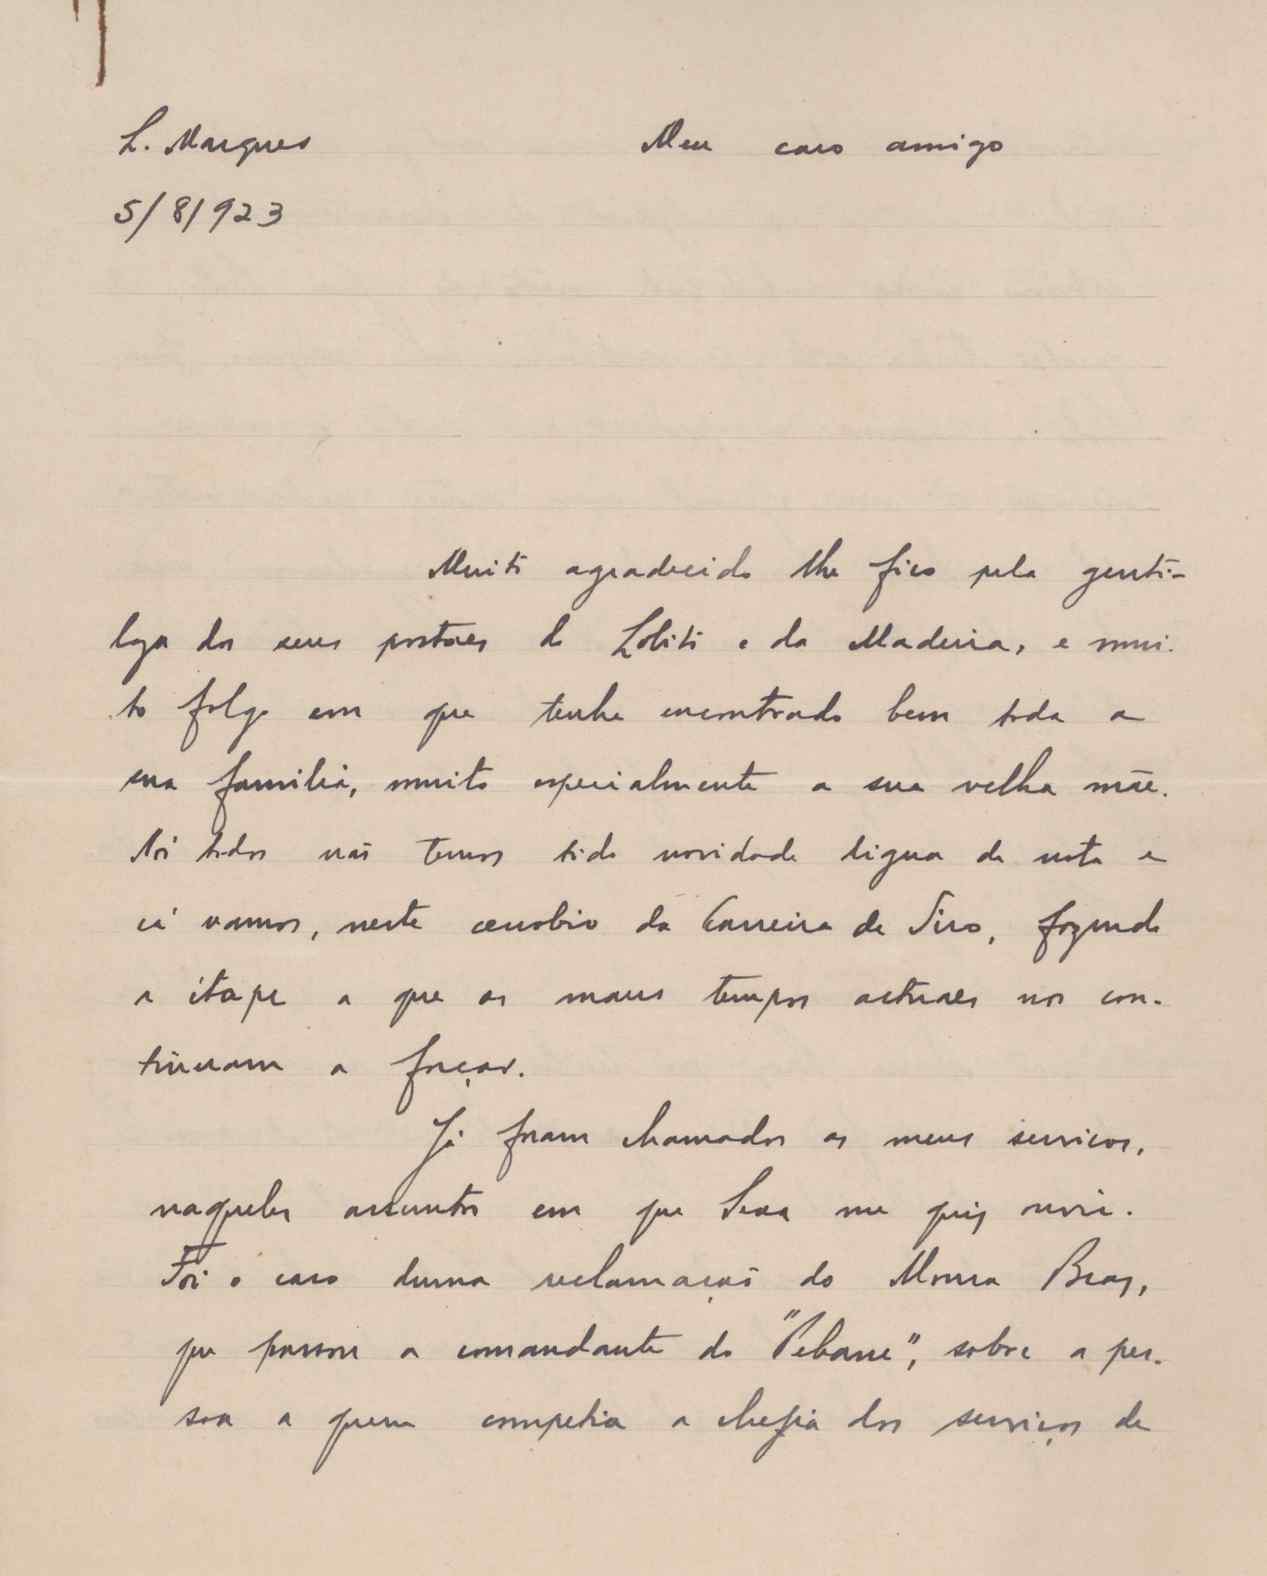 L. Marques
Meu caro amigo
5/8/923
Muito agradecido lhe fico pela genti-
leza dos seus postaes do Lobito e da Madeira, e mui-
to folgo em que tenha encontrado bem toda a
sua familia, muito especialmente a sua velha mãe.
Nós todos não temos tido novidade digna de nota e
cá vamos, neste cenobio da Carreira de Tiro, fazendo
a étape a que os maus tempos actuaes nos con-
tinuam a forçar.
Já foram chamados os meus serviços,
naqueles assuntos em que Sexa me quiz ouvir.
Foi o caso duma reclamação do Moura Braz,
que passou a comandante do "Pebane", sobre a pes-
soa a quem competia a chefia dos serviços de